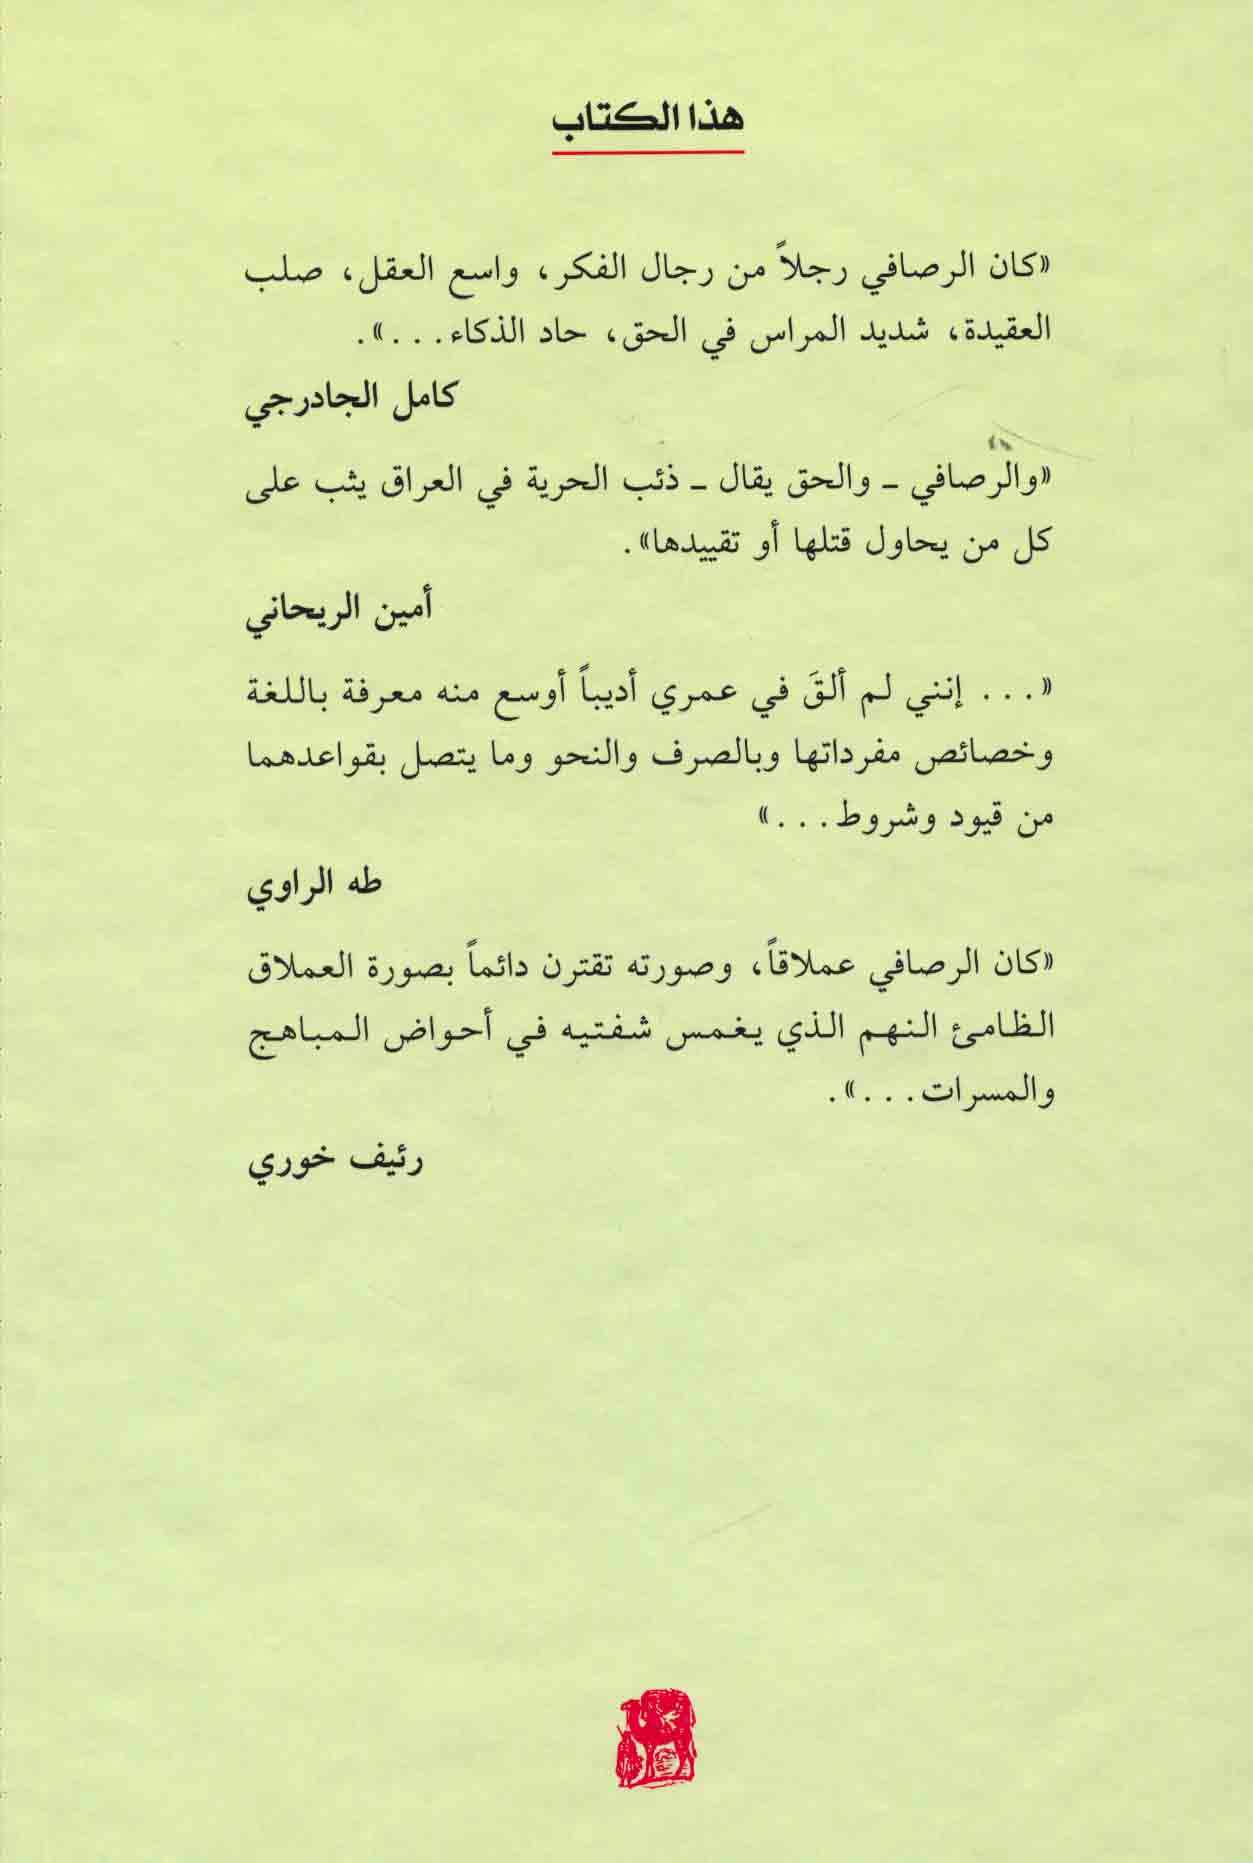 هذا الكتاب
«كان الرصافي رجلاً من رجال الفكر، واسع العقل، صلب
العقيدة، شديد المراس في الحق، حاد الذكاء...».
كامل الجادرجي
«والرصافي ـ والحق يقال ـ ذئب الحرية في العراق يثب على
كل من يحاول قتلها أو تقييدها».
أمين الريحاني
«... إنني لم ألقَ في عمري أديباً أوسع منه معرفة باللغة
وخصائص مفرداتها وبالصرف والنحو وما يتصل بقواعدهما
من قيود وشروط...»
طه الراوي
«كان الرصافي عملاقاً، وصورته تقترن دائماً بصورة العملاق
الظامئ النهم الذي يغمس شفتيه في أحواض المباهج
والمسرات...».
رئيف خوري